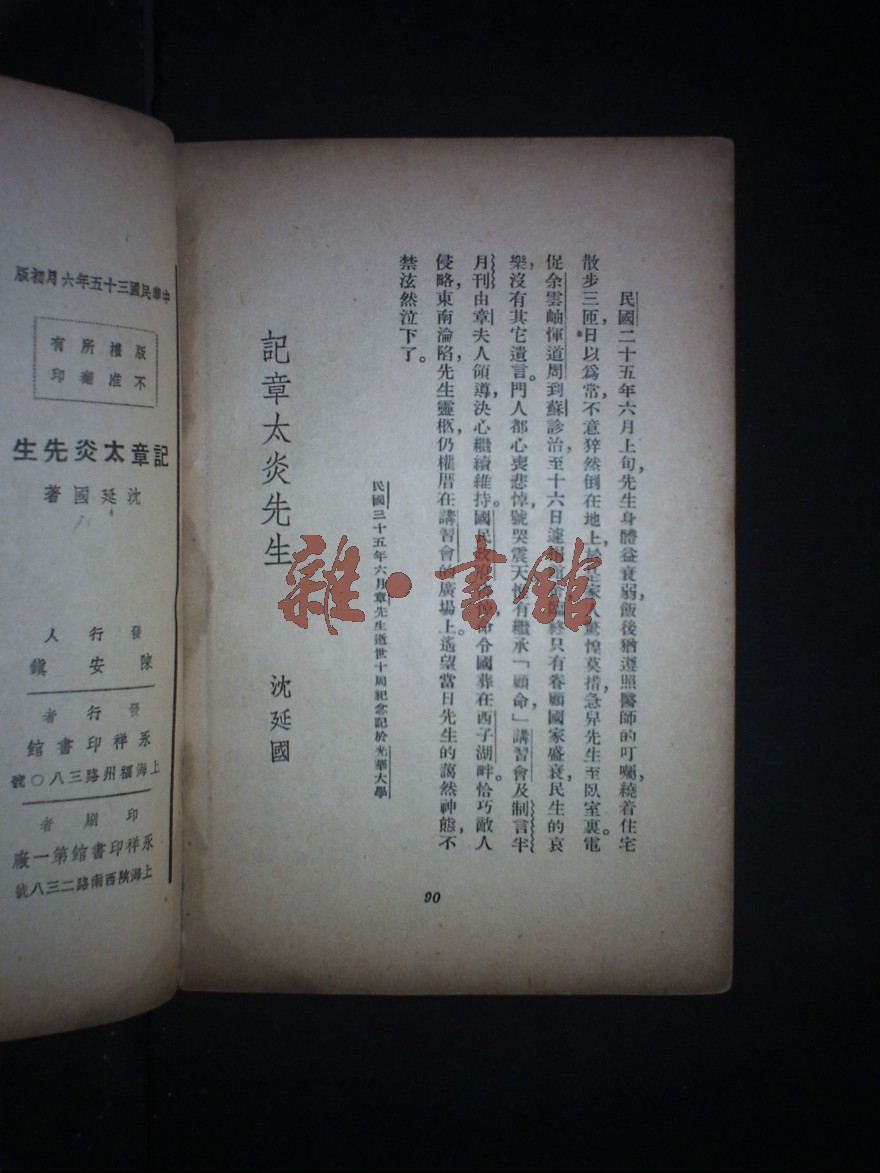 民國二十五年六月上旬，先生身體益衰弱，飯後猶遵照醫師的叮囑，繞着住宅
散步三匝，日以爲常，不意猝然倒在地上，家人驚惶莫措，急舁先生至臥室裏。電
促余雲岫惲道周到蘇診治，至十六日終只有眷顧國家盛衰，民生的哀
樂，沒有其它遺言。門人都心喪悲悼，號哭震天，有繼承「顧命」，講習會及制言半
月刊由章夫人領導，決心繼續維持。國民政府命令國葬在西子湖畔。恰巧敵人
侵略，東南淪陷，先生靈柩仍權厝在講習會的廣場上。遙望當日先生的藹然神態，不
禁泫然泣下了。
民國三十五年六月章先生逝世十周紀念記於光華大學
記章太炎先生 沈延國
90
中華民國三十五年六月初版
版權所有
不准翻印
記章太炎先生
沈延國著
發行人
陳安鎮
發行者
永祥印書館
上海福州路三八〇號
印刷者
永祥印書館第一廠
上海陝西南路二三八號
雜·書館